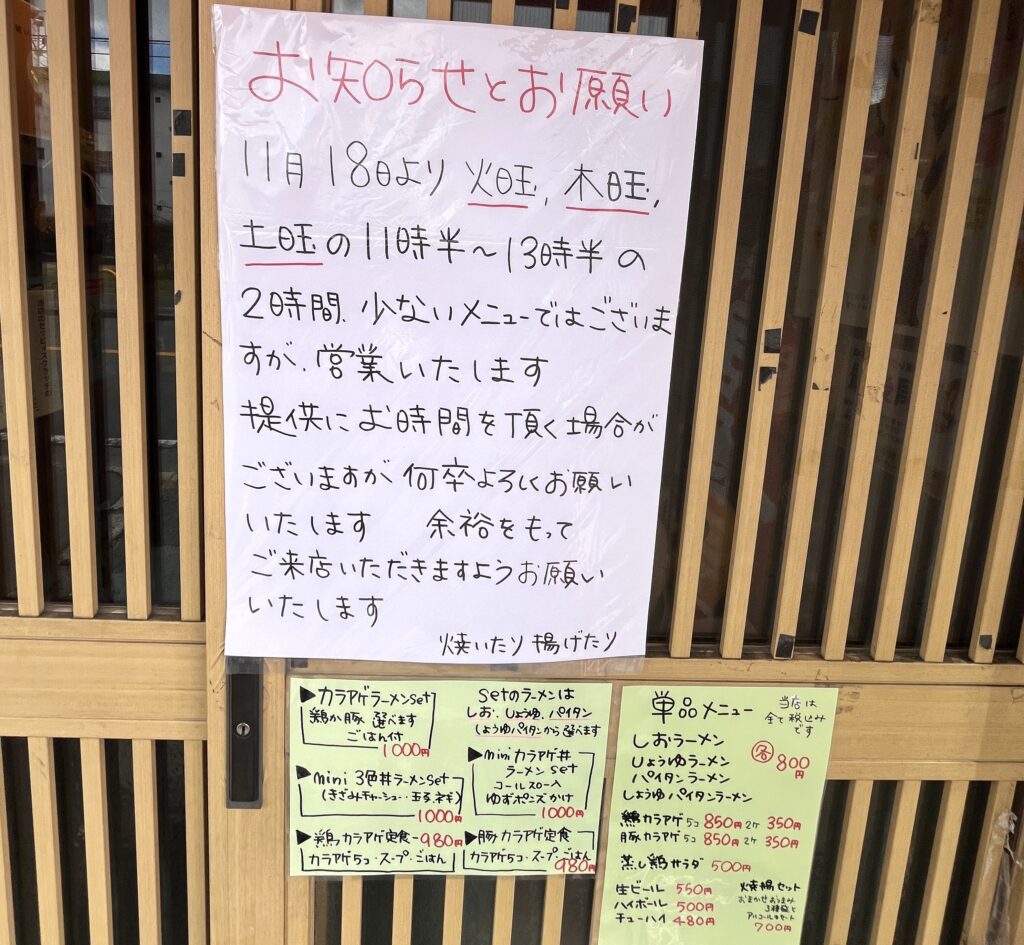 お知らせとお願い
11月18日より 火曜, 木曜,
土曜の11時半～13時半の
2時間、少ないメニューではございま
すが、営業いたします
提供にお時間を頂く場合が
ございますが何卒よろしくお願い
いたします 余裕をもって
ご来店いただきますようお願い
いたします
焼いたり揚げたり
▶カラアゲラーメンset
鶏か豚 選べます
ごはん付
1000円
setのラーメンは
しお、しょうゆ、パイタン
しょうゆパイタンから選べます
▶mini 3色丼ラーメンset
(きざみチャーシュー・玉子・ネギ)
1000円
▶mini カラアゲ丼
ラーメン set
コールスロー入
ゆずポンズかけ
1000円
▶鶏カラアゲ定食-980円
カラアゲ5コ・スープ・ごはん
▶豚カラアゲ定食
カラアゲ5コ・スープ・ごはん
980円
単品メニュー
当店は
全て税込み
です
しおラーメン
しょうゆラーメン
パイタンラーメン
しょうゆパイタンラーメン
各800円
鶏カラアゲ5コ 850円 2ケ 350円
豚カラアゲ5コ 850円 2ケ 350円
蒸し鶏サラダ 500円
生ビール 550円
ハイボール 500円
チューハイ 480円
焼揚セット
おまかせおつまみ
3種盛と
アルコールのセット
700円